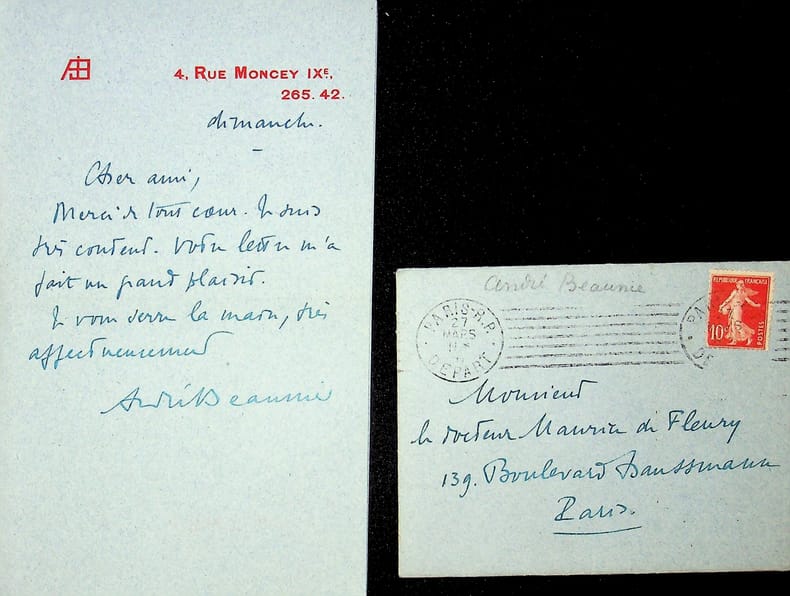 AB
4, RUE MONCEY IXE,
265.42.
dimanche.
Cher ami,
Merci de tout cœur. Je suis
très content. Votre lettre m'a
fait un grand plaisir.
Je vous serre la main, très
affectueusement
André Beaunier
André Beaunie
PARIS R.P.
27
MARS
DEPART
REPUBLIQUE FRANÇAISE
10c
POSTES
PA
DE
Monsieur
le docteur Maurice de Fleury
139. Boulevard Haussmann
Paris.